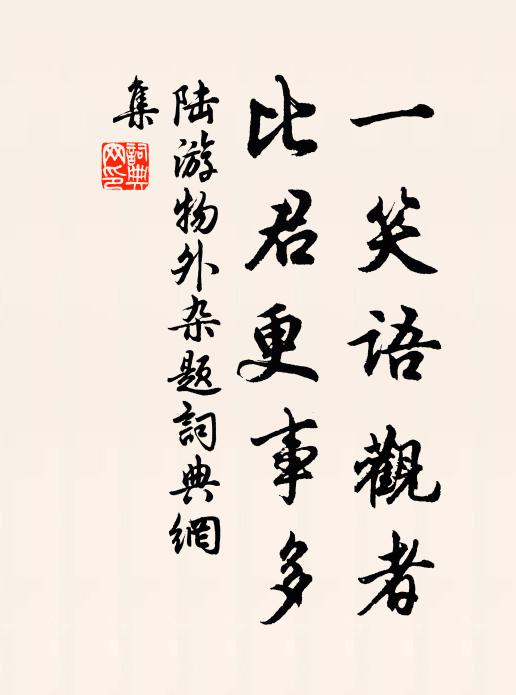 一笑語觀者
比君更事多
陆游物外杂题詞典網
集
詞典
网印